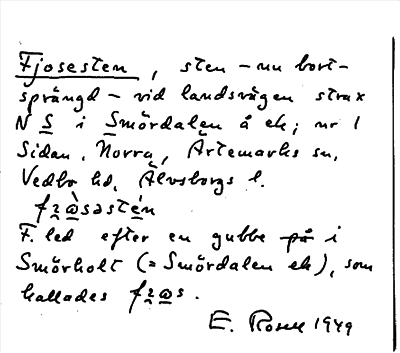 Fjosesten, sten – nu bort-
sprängd – vid landsvägen strax
N S i Smördalen å ek; nr 1
Sidan, Norra, Ärtemarks sn,
Vedbo hd, Älvsborgs l.
F. led efter en gubbe på i
Smörholt (= Smördalen ek), som
kallades
E. Rosell 1949